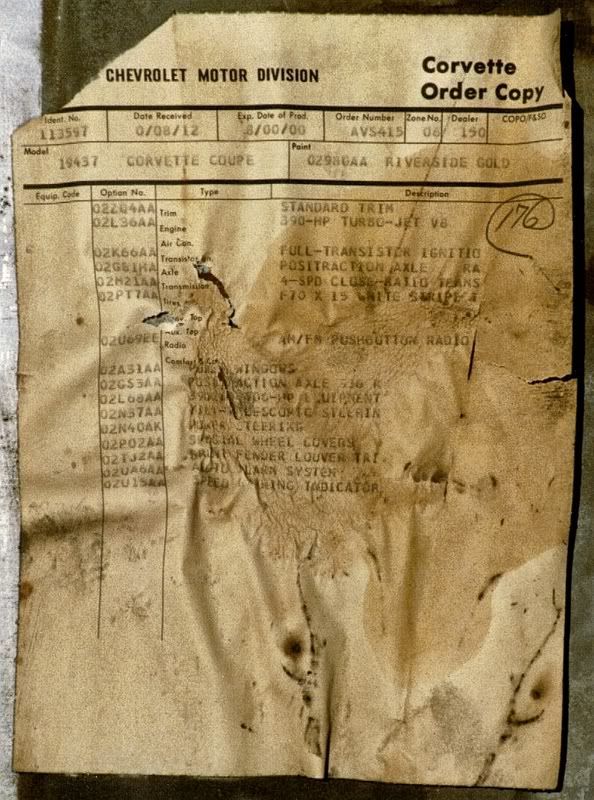 CHEVROLET MOTOR DIVISION
Corvette
Order Copy
Ident. No. Date Received Exp. Date of Prod. Order Number Zone No. Dealer COPO/F&SO
113597 0/08/12 8/00/00 AVS415 08 150
Model Paint
19437 CORVETTE COUPE 02980AA RIVERSIDE GOLD
Equip. Code Option No. Type Description
02ZQ4AA Trim STANDARD TRIM 176
02L36AA Engine 390-HP TURBO-JET V8
Air Con.
02K66AA FULL-TRANSISTOR IGNITIO
Axle POSITRACTION AXLE RA
02M21AA Transmission 4-SPD CLOSE-RATIO TRANS
02PT7AA Tires F70 X 15 WHITE STRIPE T
Top
Top
02U69EE Radio AM/FM PUSHBUTTON RADIO
02A31AA WINDOWS
02GS3AA AXLE
02L68AA
02N37AA TILT-TELESCOPIC STEERIN
02N40AK POWER STEERING
02P02AA SPECIAL WHEEL COVERS
02TJ2AA FRONT FENDER LOUVER TRI
02UA6AA ALARM SYSTEM
02U15AA SPEED INDICATOR